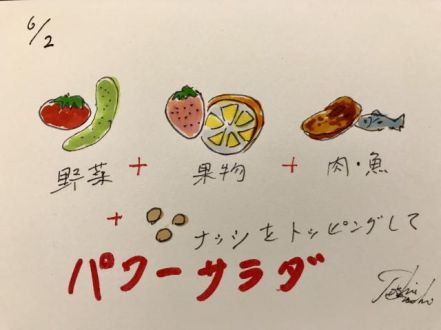 6/2
野菜 + 果物 + 肉・魚
+ ナッツをトッピングして
パワーサラダ